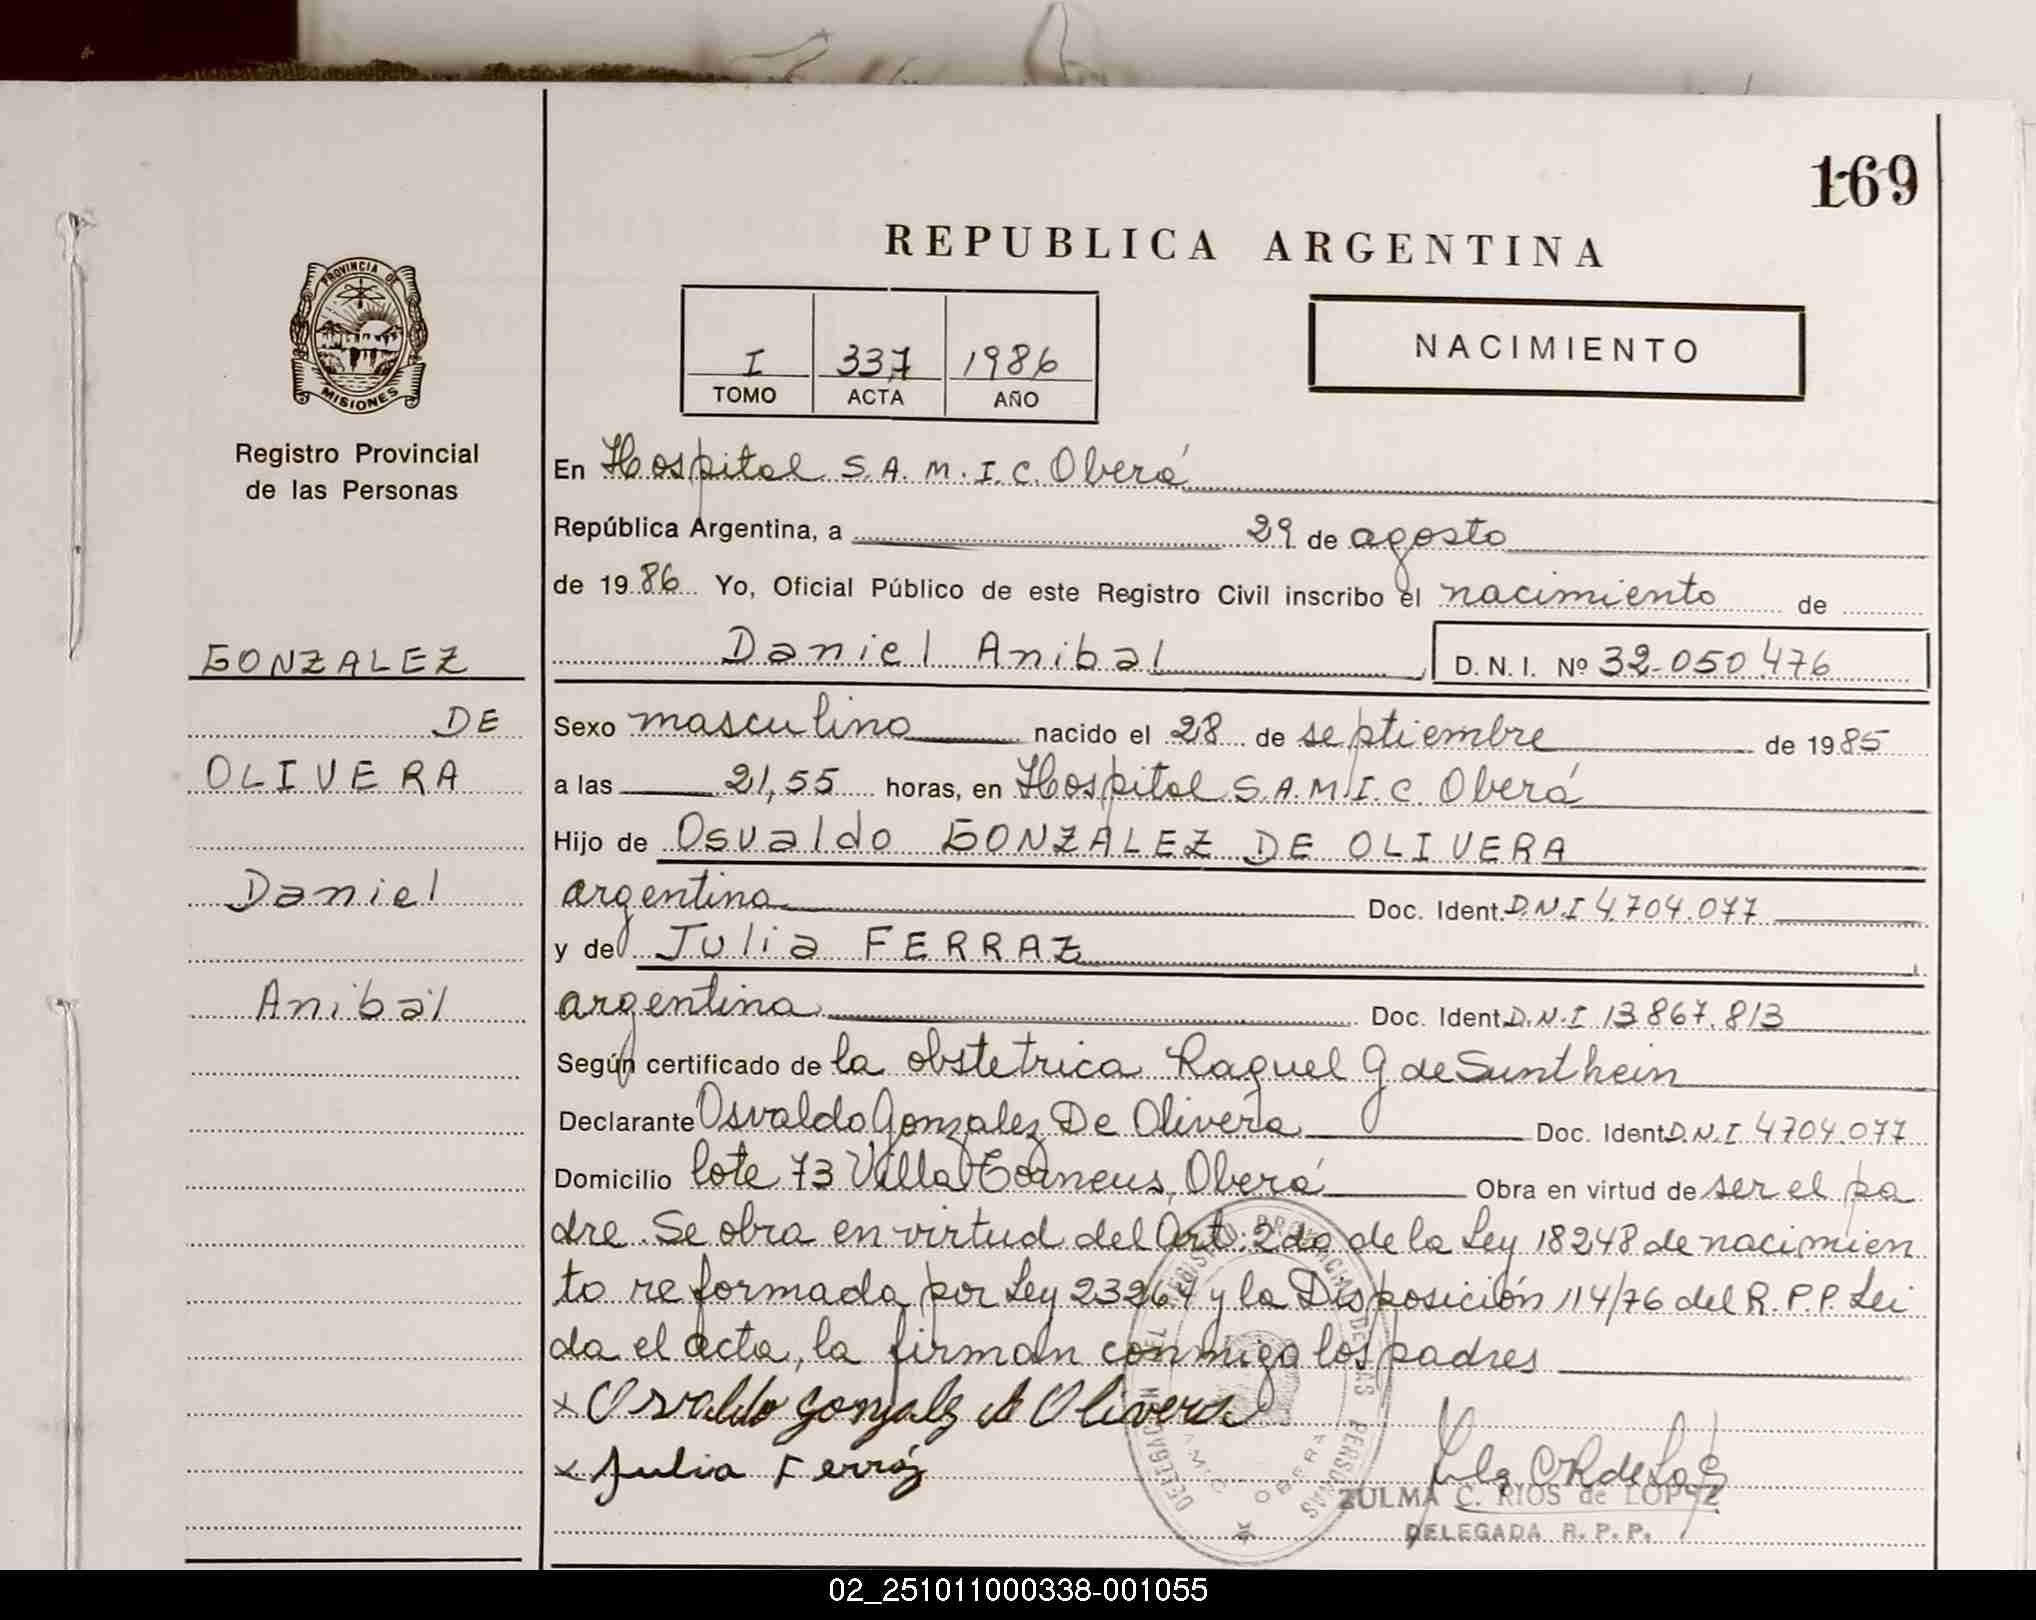 169
REPUBLICA ARGENTINA
PROVINCIA DE
MISIONES
Registro Provincial
de las Personas
I 337 1986
TOMO ACTA AÑO
NACIMIENTO
En Hospital S.A.M.I.C. Oberá
República Argentina, a 29 de agosto
de 1986 Yo, Oficial Público de este Registro Civil inscribo el nacimiento de
Daniel Anibal D.N.I. Nº 32.050.476
GONZALEZ
DE
OLIVERA
Daniel
Anibal
Sexo masculino nacido el 28 de septiembre de 1985
a las 21,55 horas, en Hospital S.A.M.I.C. Oberá
Hijo de Osvaldo GONZALEZ DE OLIVERA
argentino Doc. Ident. D.N.I 4.704.077
y de Julia FERRAZ
argentina Doc. Ident. D.N.I 13.867.813
Según certificado de la obstetrica Raquel G de Sunthein
Declarante Osvaldo Gonzalez De Olivera Doc. Ident. D.N.I 4704.077
Domicilio lote 73 Villa Oberá Obra en virtud de ser el pa
dre. Se obra en virtud del Art. 2do de la Ley 18248 de nacimien
to reformada por Ley 23264 y la Disposición 114/76 del R.P.P. Lei
da el acta, la firman conmigo los padres
x Osvaldo gonzalz de Olivera
x Julia Ferráz
DELEGACION DEL REGISTRO PROVINCIAL DE LAS PERSONAS
SAMIC OBERA
ZULMA C. RIOS de LOPEZ
DELEGADA R. P. P.
02_251011000338-001055